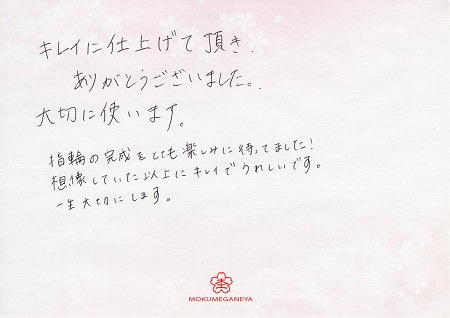 キレイに仕上げて頂き、
ありがとうございました。
大切に使います。
指輪の完成をとても楽しみに待ってました!
想像していた以上にキレイでうれしいです。
一生大切にします。
MOKUMEGANEYA